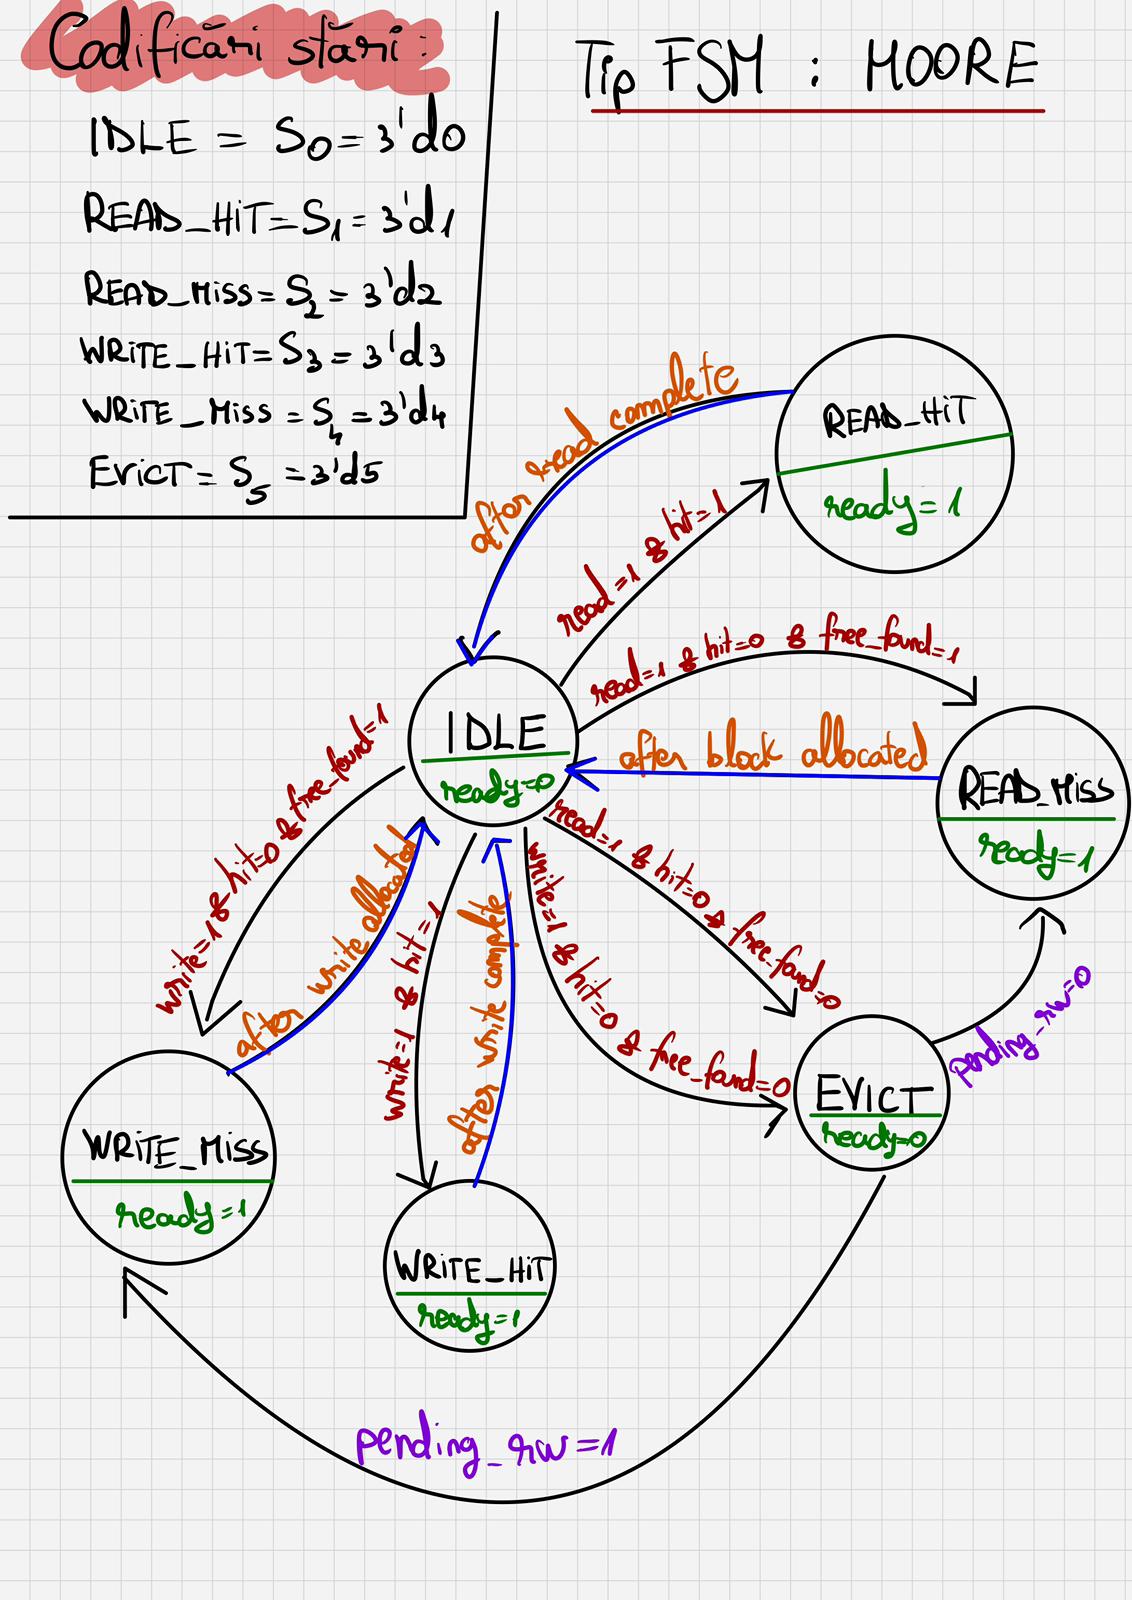 Codificări stări:
IDLE = S0 = 3'd0
READ_HiT = S1 = 3'd1
READ_Miss = S2 = 3'd2
WRiTE_HiT = S3 = 3'd3
WRiTE_Miss = S4 = 3'd4
EvicT = S5 = 3'd5
Tip FSM : MOORE
READ_HiT
ready = 1
after read complete
read=1 & hit=1
read=1 & hit=0 & free_found=1
IDLE
ready=0
after block allocated
READ_Miss
ready=1
write=1 & hit=0 & free_found=1
after write allocated
write=1 & hit=1
after write complete
write=1 & hit=0 & free_fand=0
read=1 & hit=0 & free_fand=0
EVICT
ready=0
pending_rw=0
WRiTE_Miss
ready=1
WRiTE_HiT
ready=1
pending_rw=1